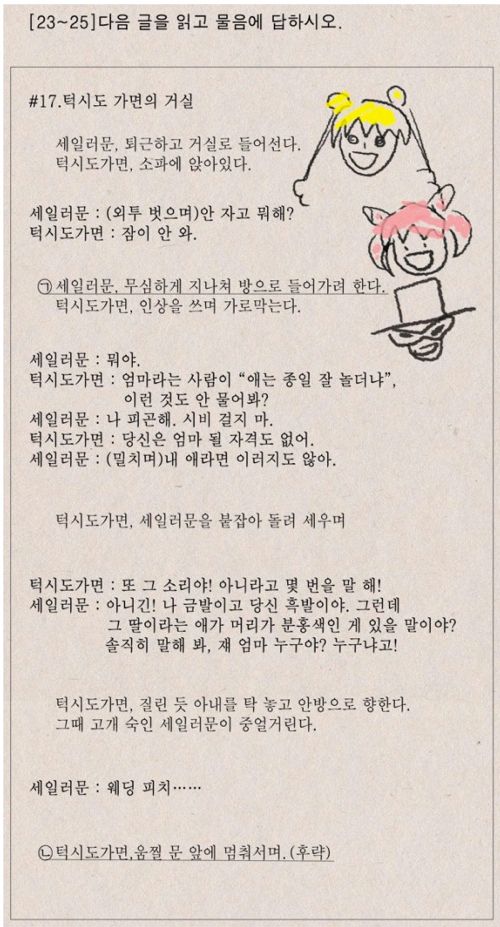 [23~25]다음 글을 읽고 물음에 답하시오.
#17.턱시도 가면의 거실
세일러문, 퇴근하고 거실로 들어선다.
턱시도가면, 소파에 앉아있다.
세일러문 : (외투 벗으며)안 자고 뭐해?
턱시도가면 : 잠이 안 와.
㉠세일러문, 무심하게 지나쳐 방으로 들어가려 한다.
턱시도가면, 인상을 쓰며 가로막는다.
세일러문 : 뭐야.
턱시도가면 : 엄마라는 사람이 “애는 종일 잘 놀더냐”,
이런 것도 안 물어봐?
세일러문 : 나 피곤해. 시비 걸지 마.
턱시도가면 : 당신은 엄마 될 자격도 없어.
세일러문 : (밀치며)내 애라면 이러지도 않아.
턱시도가면, 세일러문을 붙잡아 돌려 세우며
턱시도가면 : 또 그 소리야! 아니라고 몇 번을 말 해!
세일러문 : 아니긴! 나 금발이고 당신 흑발이야. 그런데
그 딸이라는 애가 머리가 분홍색인 게 있을 말이야?
솔직히 말해 봐, 쟤 엄마 누구야? 누구냐고!
턱시도가면, 질린 듯 아내를 탁 놓고 안방으로 향한다.
그때 고개 숙인 세일러문이 중얼거린다.
세일러문 : 웨딩 피치……
㉡턱시도가면,움찔 문 앞에 멈춰서며.(후략)